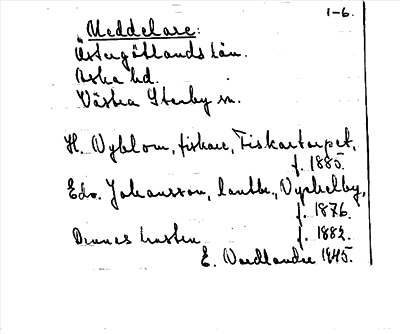 1-6.
Meddelare:
Östergötlands län.
Aska hd.
Västra Stenby sn.
H. Nyblom, fiskare, Fiskartorpet,
f. 1885.
Edv. Johansson, lantbr.,
f. 1876.
Dennes hustru f. 1882.
E. Nordlander 1945.